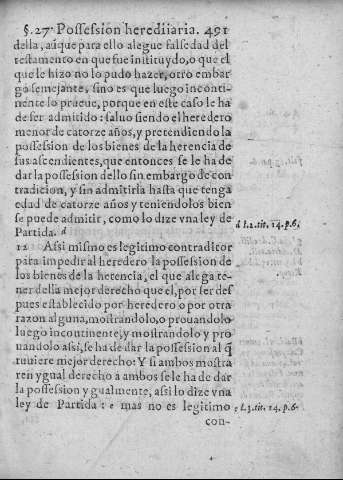 §.27. Possession herediiaria. 491
della, aũque para ello alegue falsedad del
testamento en que fue instituydo, o que el
que le hizo no lo pudo hazer, otro embar
go semejante, sino es que luego inconti-
nente lo prueue, porque en este caso le ha
de ser admitido: saluo siendo el heredero
menor de catorze años, y pretendiendo la
possession de los bienes de la herencia de
sus ascendientes, que entonces se le ha de
dar la possession dello sin embargo de con
tradicion, y sin admitirla hasta que tenga
edad de catorze años y teniendolos bien
se puede admitir, como lo dize vna ley de
Partida. d
d l.2. tit. 14. p.6.
12 Assi mismo es legitimo contraditor
para impedir al heredero la possession de
los bienes de la herencia, el que alega te-
ner della mejor derecho que el, por ser des
pues establecido por heredero o por otra
razon alguna, mostrandolo, o prouandolo
luego incontinente, y mostrandolo y pro
uandolo assi, se ha de dar la possession al q̃
tuuiere mejor derecho: Y si ambos mostra
ren ygual derecho a ambos se le ha de dar
la possession y gualmente, assi lo dize vna
ley de Partida: e mas no es legitimo
e l.3. tit. 14. p.6.
con-